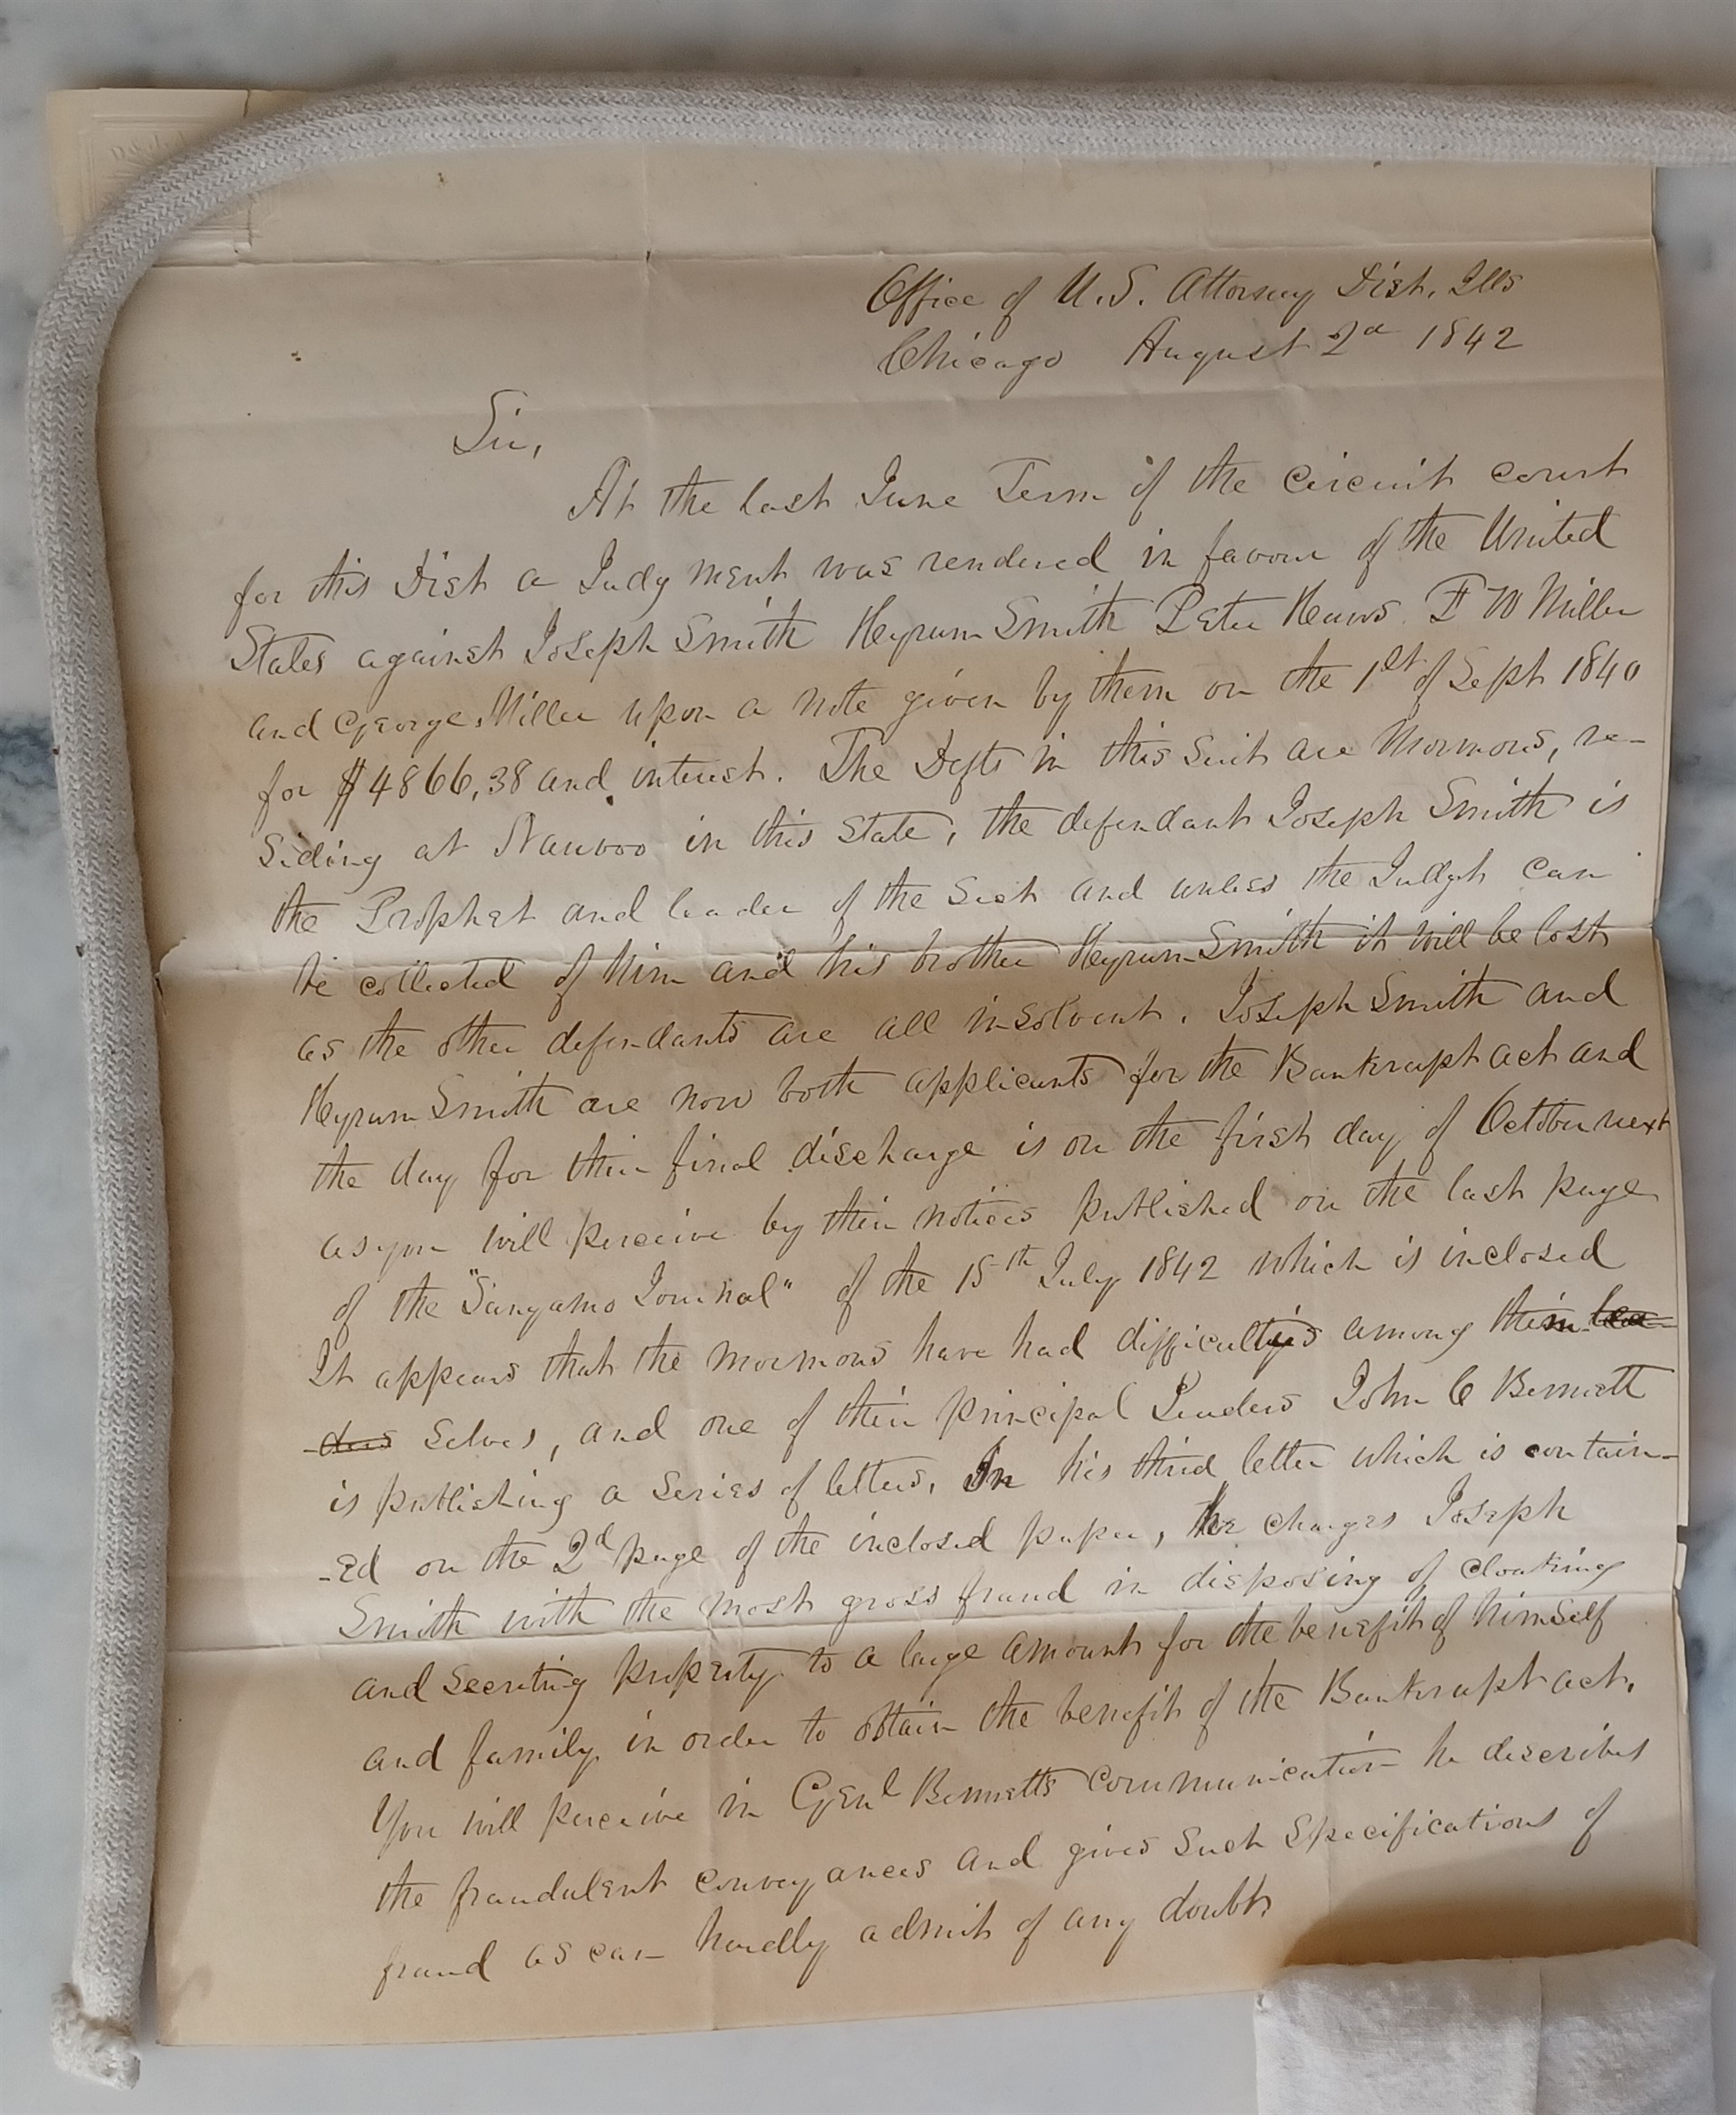 Office of U.S. Attorney Dist. Ills
Chicago August 2d 1842
Sir,
At the last June Term of the circuit court
for this Dist a Judgment was rendered in favour of the United
States against Joseph Smith Hyrum Smith Peter Haws H W Miller
and George Miller upon a note given by them on the 1st of Sept 1840
for $4866,38 and interest. The Defts in this suit are Mormons, re-
siding at Nauvoo in this State, the defendant Joseph Smith is
the Prophet and leader of the Sect and unless the Judgt can
be collected of him and his brother Hyrum Smith it will be lost
as the other defendants are all insolvent. Joseph Smith and
Hyrum Smith are now both applicants for the Bankrupt act and
the day for their final discharge is on the first day of October next
as you will perceive by their notices published on the last page
of the "Sangamo Journal" of the 15th July 1842 which is inclosed
It appears that the mormons have had difficulties among them lea-
ders selves, and one of their principal Leaders John C Bennett
is publishing a series of letters, In his third letter which is contain-
-ed on the 2d page of the inclosed paper, he charges Joseph
Smith with the most gross fraud in disposing of cloaking
and secreting property to a large amount for the benefit of himself
and family in order to obtain the benefit of the Bankrupt act.
You will perceive in Genl Bennetts communication he describes
the fraudulent conveyances and gives such specifications of
fraud as can hardly admit of any doubt.